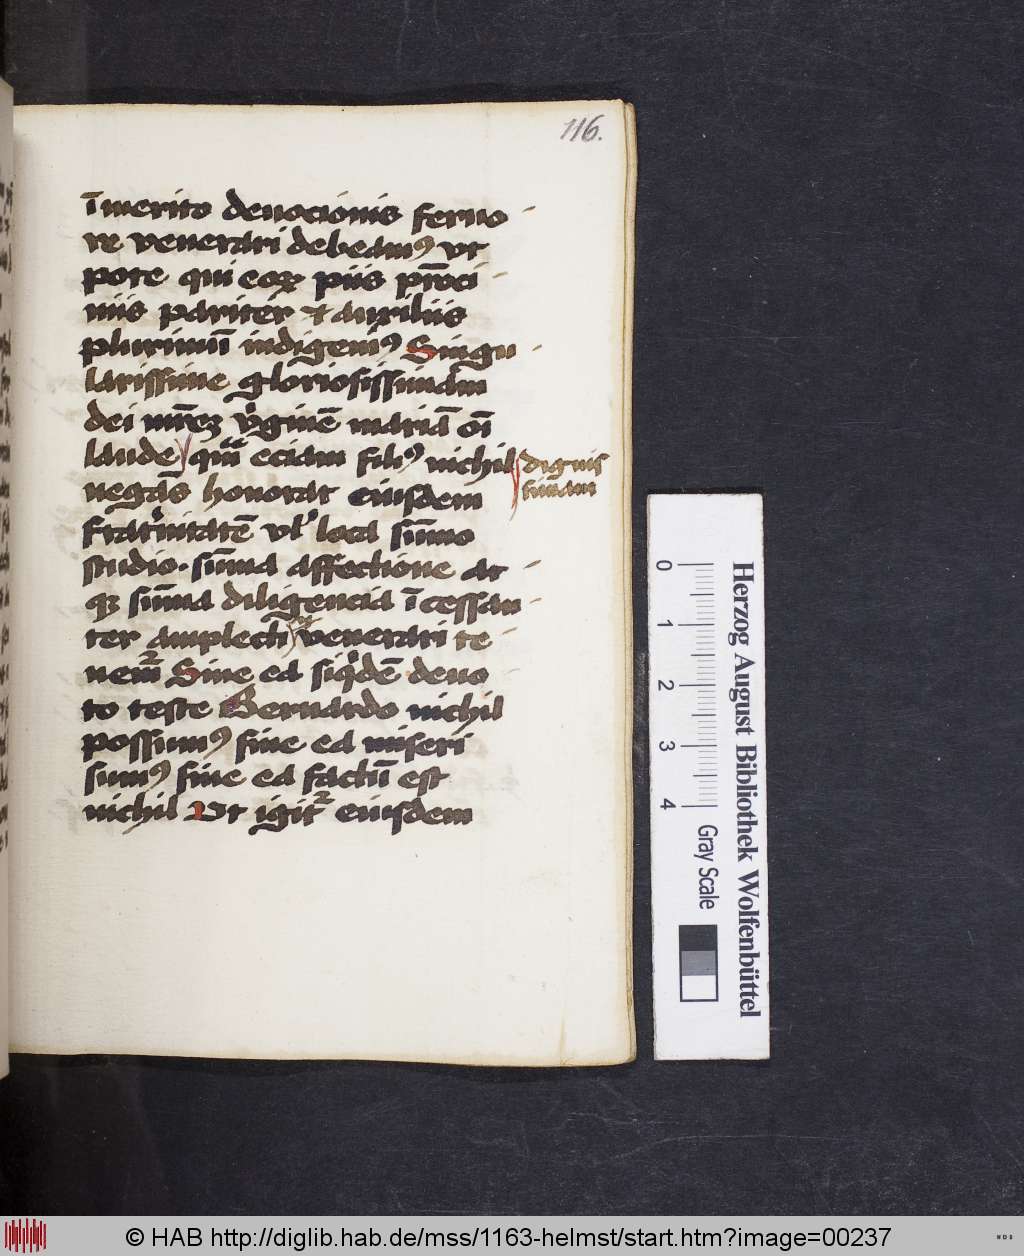 116.
īmerito deuocionis feruo-
re venerari debeamꝰ vt
pote qui eoꝝ piis pr̄oci-
niis pariter ⁊ auxiliis
plurimū indigemꝰ Singu-
larissime gloriosissimam
dei mr̄eꝫ v̊ginē mariā oī
laude qua᷒ eciam filiꝰ nichil dignis
negās honorat eiusdem simam
fraternitatē vl̓ loca sūmo
studio. sūma affectione at-
qꝫ sūma diligencia īcessan-
ter amplecti venerari te-
nemr̄ Sine ea siqͥdē deuo
to teste Bernardo nichil
possumꝰ sine ea miseri
sumꝰ sine ea factū est
nichil Vt igitr̄ eiusdem
0 1 2 3 4
Gray Scale
Herzog August Bibliothek Wolfenbüttel
© HAB http://diglib.hab.de/mss/1163-helmst/start.htm?image=00237